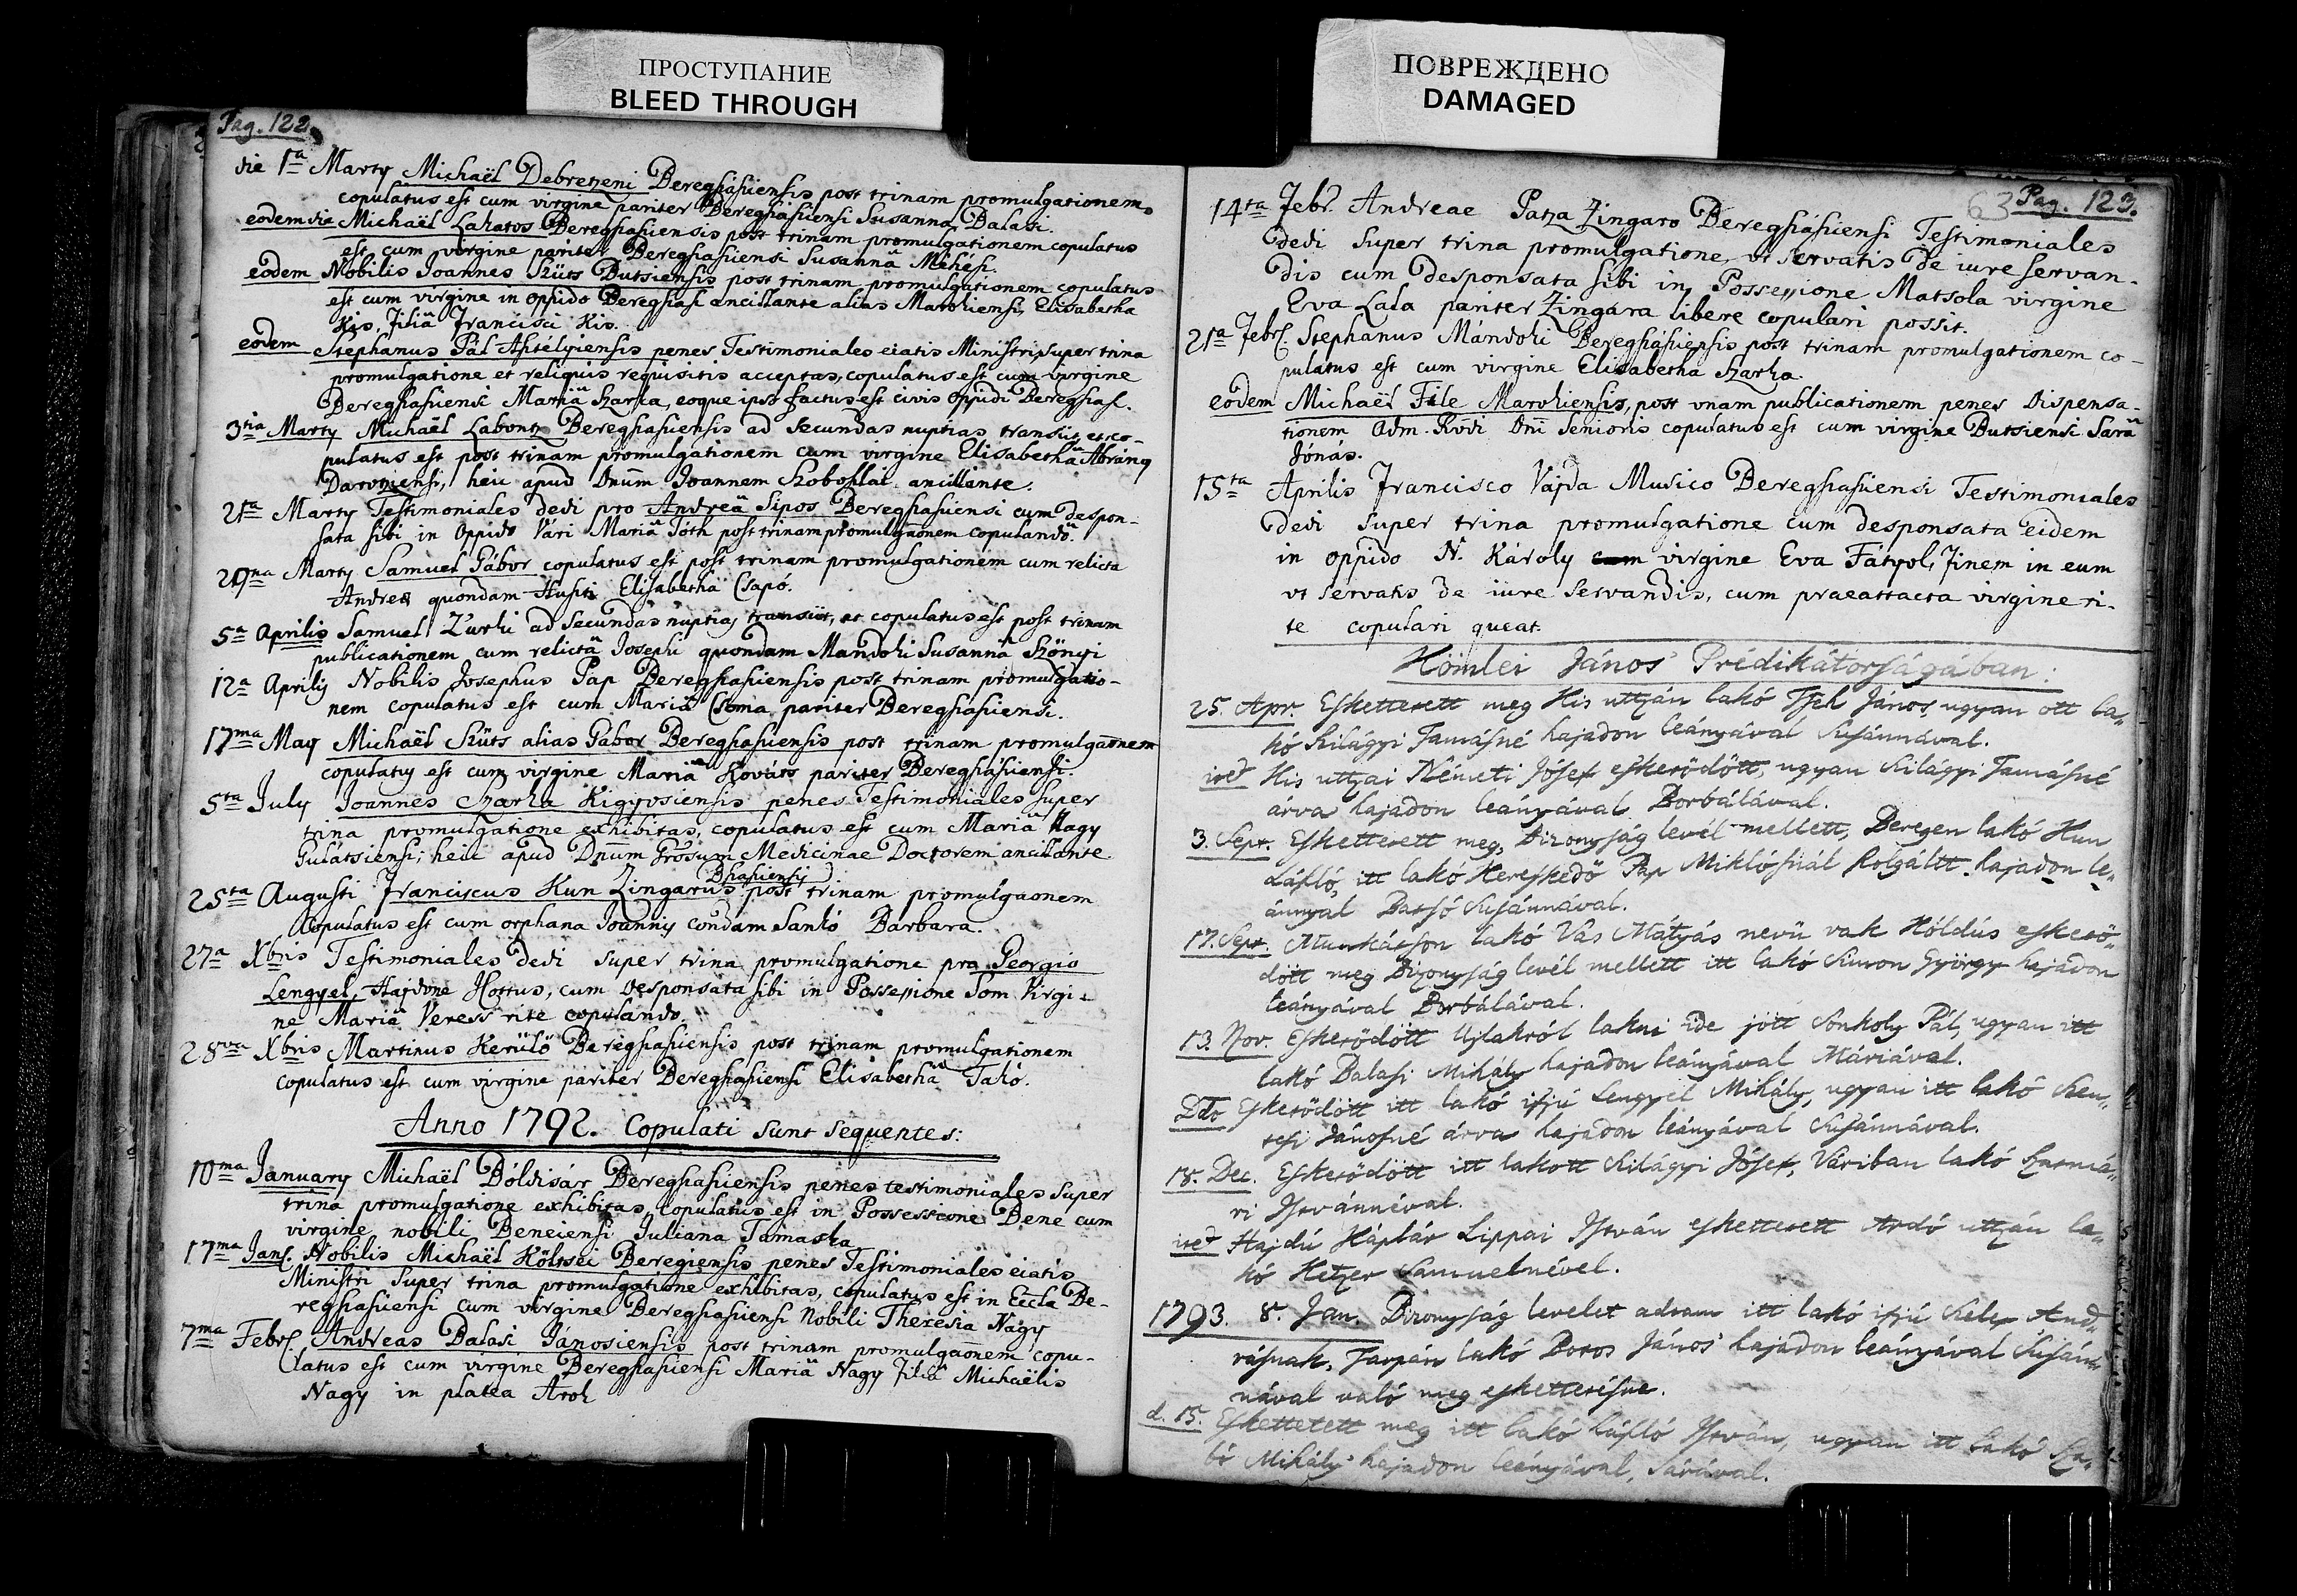 ПРОСТУПАНИЕ
BLEED THROUGH
ПОВРЕЖДЕНО
DAMAGED
Pag. 122.
die 1a Marty Michaël Debretzeni Bereghsásiensis post trinam promulgationem
copulatus est cum virgine pariter Bereghsásiensi Susanna Balasi.
eodem die Michaël Lakatos Bereghsasiensis post trinam promulgationem copulatus
est cum virgine pariter Bereghsasiensi Susannä Méhési.
eodem Nobilis Joannes Szüts Butsiensis post trinam promulgationem copulatus
est cum virgine in oppido Bereghsasi ancillante alias Marokiensi, Elisabetha
Kis, Filiä Francisci Kis.
eodem Stephanus Pál Astélyiensis penes Testimoniales eiatis Ministri super trina
promulgatione et reliquis requisitis acceptas, copulatus est cum virgine
Bereghsasiensi Mariä Szarka, eoque ipso factus est civis oppidi Bereghsas.
3tia Marty Michaël Labontz Bereghsasiensis ad secundas nuptias transiit et co-
pulatus est post trinam promulgationem cum virgine Elisabethä Abrány
Darotziensi, heic apud Dnum Joannem Szoboszlai ancillante.
21a Marty Testimoniales dedi pro Andreä Sipos Bereghsasiensi cum despon-
sata sibi in Oppido Vári Mariä Tóth post trinam promulgaonem copulando.
29na Marty Samuel Gábor copulatus est post trinam promulgationem cum relicta
Andreae quondam Huszti Elisabethä Csapó.
5a Aprilis Samuel Zurki ad secundas nuptias transiit, et copulatus est post trinam
publicationem cum relictä Josephi quondam Mandoki Susannä Szönyi
12a Aprilis Nobilis Josephus Pap Bereghsasiensis post trinam promulgatio-
nem copulatus est cum Mariä Csoma pariter Bereghsasiensi.
17ma May Michaël Szüts alias Gábor Bereghsasiensis post trinam promulgaonem
copulatus est cum virgine Mariä Kováts pariter Bereghsásiensi.
5ta July Joannes Szarka Kigyosiensis penes Testimoniales super
trina promulgatione exhibitas, copulatus est cum Mariä Nagy
Gulátsiensi; heic apud Dnum Grosum Medicinae Doctorem ancillante.
Bhsasiensis
25ta Augusti Franciscus Kun Zingarus post trinam promulgaonem
Copulatus est cum orphana Joannis condam Sankó Barbara.
27a Xbris Testimoniales dedi super trina promulgatione pro Georgio
Lengyel, Hajdone Hottus, cum desponsata sibi in Possessione Som Virgi-
ne Mariä Veress rite copulando.
28va Xbris Martinus Kerülö Bereghsasiensis post trinam promulgationem
copulatus est cum virgine pariter Bereghsasiensi Elisabethä Takó.
Anno 1792. Copulati sunt sequentes:
10ma January Michaël Bóldisár Bereghsasiensis penes testimoniales super
trina promulgatione exhibitas, Copulatus est in Possessione Bene cum
virgine nobili Beneiensi Juliana Tamaska
17ma Jan. Nobilis Michaël Költsei Beregiensis penes Testimoniales eiatis
Ministri super trina promulgatione exhibitas, copulatus est in Eccla Be-
reghsasiensi cum virgine Bereghsasiensi Nobili Theresia Nagy
7ma Febr. Andreas Balasi Jánosiensis post trinam promulgaonem copu-
latus est cum virgine Bereghsasiensi Mariä Nagy Filia Michaëlis
Nagy in platea Arok
63 Pag. 123.
14ta Febr. Andreae Patza Zingaro Bereghsásiensi Testimoniales
dedi super trina promulgatione, ut servatis de iure servan-
dis cum desponsata sibi in Possessione Matsola virgine
Eva Lala pariter Zingara libere copulari possit.
21a Febr. Stephanus Mándoki Bereghsásiensis post trinam promulgationem co-
pulatus est cum virgine Elisabetha Szarka.
eodem Michaël File Marokiensis, post unam publicationem penes Dispensa-
tionem Adm. Rvdi Dni Senioris copulatus est cum virgine Butsiensi Sarä
Jónás.
15ta Aprilis Francisco Vajda Musico Bereghsasiensi Testimoniales
dedi super trina promulgatione cum desponsata eidem
in oppido N. Károly cum virgine Eva Fátyol, Finem in eum
ut servatis de iure servandis, cum praeattacta virgine ri-
te copulari queat.
Kömlei János' Prédikátorságában:
25. Apr. Eskettetett meg Kis uttzán lakó Tseh János, ugyan ott la-
kó Szilágyi Tamásné hajadon leányával Susánnával.
ied Kis uttzai Németi Jósef esketödött, ugyan Szilágyi Tamásné
árva hajadon leányával Borbálával.
3. Sept. Eskettetett meg, Bizonyság levél mellett, Beregen lakó Kun
László, itt lakó Kereskedő Pap Miklósnál szolgáltt hajadon le-
ánnyal Susánnával.
17. Sept. Munkátson lakó Vas Mátyás nevü vak Kóldús eskető-
dött meg Bizonyság levél mellett itt lakó Simon György hajadon
leányával Borbálával.
13. Nov. Esketődött Ujlakról lakni ide jött Sonkoly Pál, ugyan itt
lakó Balasi Mihály hajadon leányával Máriával.
Dto Esketődött itt lakó ifjú Lengyel Mihály, ugyan itt lakó Ken-
tesi Jánosné árva hajadon leányával Susánnával.
18. Dec. Esketődött itt lakott Szilágyi Jósef, Váriban lakó Szatmá-
ri Istvánnéval.
ied Hajdú Káplár Lippai István eskettetett Ardó uttzán la-
kó Ketzer Samuelnével.
1793. 8. Jan. Bizonyság levelet adtam itt lakó ifjú And-
rásnak, Tarpán lakó Boros János' hajadon leányával Susán-
nával való meg eskettetésne.
d. 15. Eskettetett meg itt lakó László István, ugyan itt lakó Sza-
bó Mihály' hajadon leányával, Sárával.